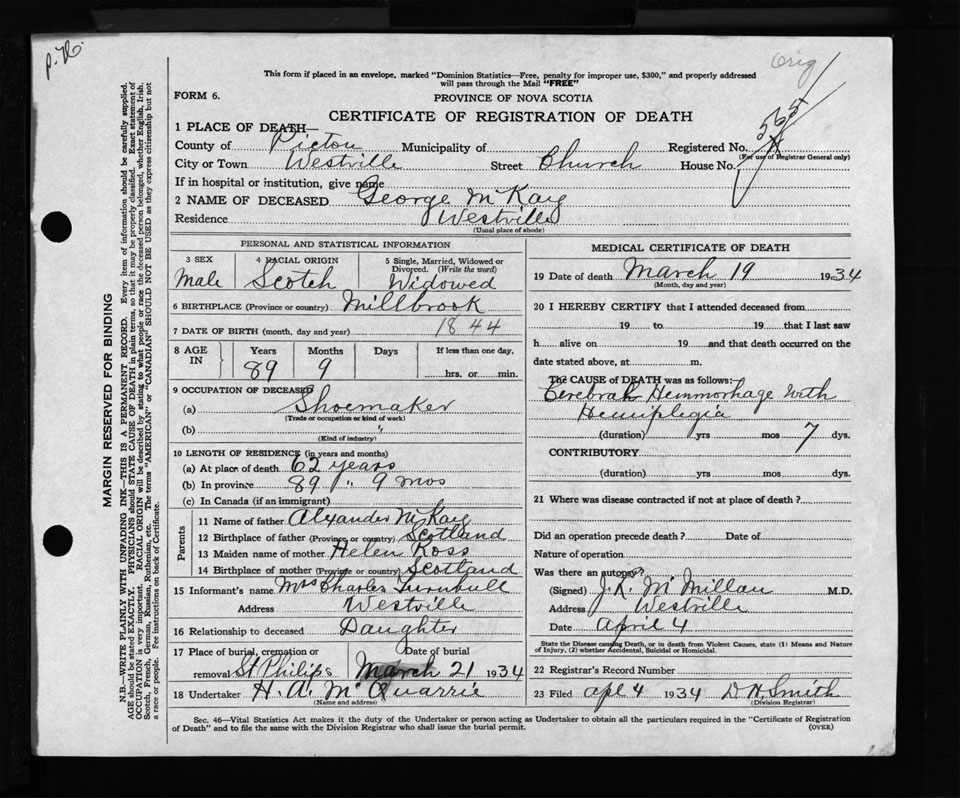 P. 76
Orig
This form if placed in an envelope, marked "Dominion Statistics—Free, penalty for improper use, $300," and properly addressed
will pass through the Mail "FREE"
FORM 6.
PROVINCE OF NOVA SCOTIA
CERTIFICATE OF REGISTRATION OF DEATH
565
1 PLACE OF DEATH—
County of Pictou Municipality of Registered No.
(For use of Registrar General only)
City or Town Westville Street Church House No.
If in hospital or institution, give name
2 NAME OF DECEASED George McKay
Residence Westville
(Usual place of abode)
PERSONAL AND STATISTICAL INFORMATION
3 SEX 4 RACIAL ORIGIN 5 Single, Married, Widowed or
Divorced. (Write the word)
Male Scotch Widowed
6 BIRTHPLACE (Province or country) Millbrook
7 DATE OF BIRTH (month, day and year) 1844
8 AGE IN Years Months Days If less than one day,
89 9 hrs. or min.
9 OCCUPATION OF DECEASED
(a) Shoemaker
(Trade or occupation or kind of work)
(b) "
(Kind of industry)
10 LENGTH OF RESIDENCE (in years and months)
(a) At place of death 62 years
(b) In province 89 " 9 mos
(c) In Canada (if an immigrant)
Parents
11 Name of father Alexander McKay
12 Birthplace of father (Province or country) Scotland
13 Maiden name of mother Helen Ross
14 Birthplace of mother (Province or country) Scotland
15 Informant's name Mrs Charles Turnbull
Address Westville
16 Relationship to deceased Daughter
17 Place of burial, cremation or Date of burial
removal St Philips March 21 1934
18 Undertaker H. A. McQuarrie
(Name and address)
MEDICAL CERTIFICATE OF DEATH
19 Date of death March 19 1934
(Month, day and year)
20 I HEREBY CERTIFY that I attended deceased from
19 to 19 that I last saw
h alive on 19 and that death occurred on the
date stated above, at m.
The CAUSE of DEATH was as follows:
Cerebral Hemmorhage with
Hemiplegia
(duration) yrs mos 7 dys.
CONTRIBUTORY
(duration) yrs mos dys.
21 Where was disease contracted if not at place of death?
Did an operation precede death? Date of
Nature of operation
Was there an autopsy?
(Signed) J. R. McMillan M.D.
Address Westville
Date April 4
State the Disease causing Death, or in death from Violent Causes, state (1) Means and Nature
of Injury, (2) whether Accidental, Suicidal or Homicidal.
22 Registrar's Record Number
23 Filed Apl 4 1934 D H Smith
(Division Registrar)
Sec. 46—Vital Statistics Act makes it the duty of the Undertaker or person acting as Undertaker to obtain all the particulars required in the "Certificate of Registration
of Death" and to file the same with the Division Registrar who shall issue the burial permit.
(OVER)
MARGIN RESERVED FOR BINDING
N.B.—WRITE PLAINLY WITH UNFADING INK—THIS IS A PERMANENT RECORD. Every item of information should be carefully supplied.
AGE should be stated EXACTLY. PHYSICIANS should STATE CAUSE OF DEATH in plain terms, so that it may be properly classified. Exact statement of
OCCUPATION is very important. RACIAL ORIGIN will be described by stating to what people or race the deceased person belonged, whether English, Irish,
Scotch, French, German, Russian, Ruthenian, etc. The terms "AMERICAN" or "CANADIAN" SHOULD NOT BE USED as they express citizenship but not
a race or people. See instructions on back of Certificate.